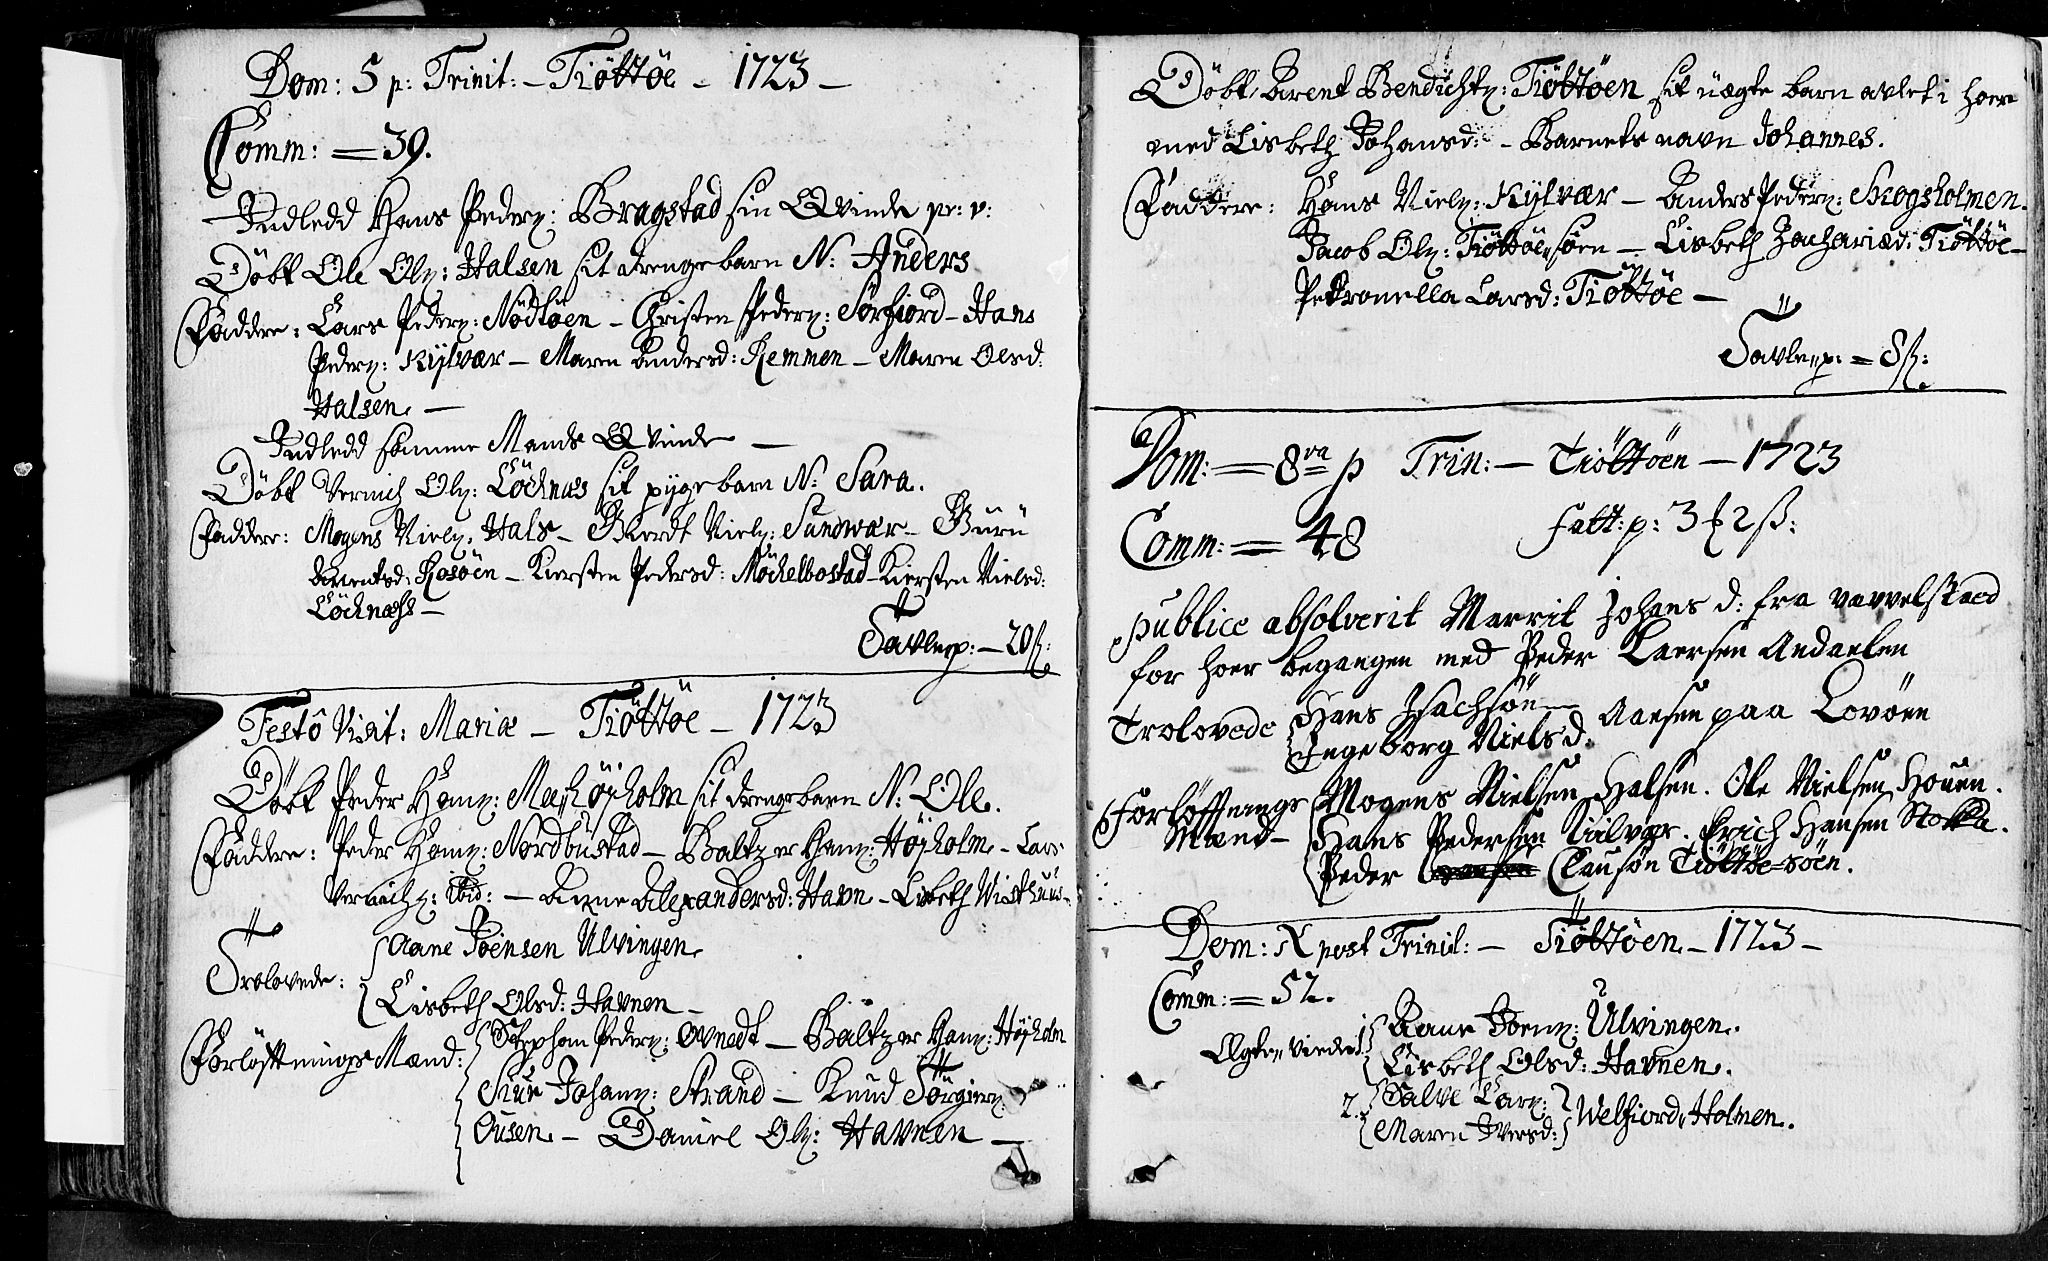 Dom: 5 p: Trinit: – Tiøttøe – 1723 –
Comm: = 39.
Indledd Hans Peders: Bragstad sin Qvinde pr: v:
Döbt Ole Ols: Halsen sit drengebarn N: Anders
Faddere: Lars Peders: Nödtöen – Christen Peders: Sörfiord – Hans
Peders: Kylvær – Maren Andersd: Remmen – Maren Olsd:
Halsen. –
Indledd samme Mands Qvinde –
Döbt Vernich Ols: Löchnæs sit pygebarn N: Sara.
Faddere: Mogens Niels: Hals – Giördt Niels: Sundvær – Gurü
Arentsd: Rosöen – Kiersten Pedersd: Möchelbostad – Kiersten Nielsd:
Löchnæss –
Tavlen p: – 20 ß:
Festô Visit: Mariæ – Tiöttöe – 1723
Döbt Peder Hans: Mashöjholm sit drengebarn N: Ole.
Faddere: Peder Hans: Nordbustad – Baltzer Hans: Höjholm – Lars
Vernichs: ibid: – Anne Alexandersd: Havn – Lisbeth Wisthuus –
Trolovede: Aane Joensen Ulvingen
Lisbeth Olsd: Havnen –
Forlöftnings Mænd: Stephan Peders: Qvnedt – Baltzer Hans: Höjholm
Siur Johans: Strand – Knud Törgiers:
Ousen – Daniel Ols: Havnen –
Döbt Barent Bendichts: Tiöttöen sit uægte barn avlet i hoer
med Lisbeth Johansd: – Barnets navn Johannes.
Faddere: Hans Niels: Kylvær – Anders Peders: Skogsholmen.
Jacob Ols: Tiöttöe söen – Lisbeth Zachariæd: Tiöttöe –
Petronella Larsd: Tiöttöe –
Tavlen p: = 8 ß:
Dom: = 8va p Trin: – Tiöttöen – 1723
Comm: = 48 Fatt: p: 3 ℔ 2 ß:
publice absolverit Marrit Johans d: fra vævelstaed
for hoer begangen med Peder Laersen Andaelen
Trolovede Hans Isachsön – Aansen paa Lovöen
Ingeborg Niels d:
Forlöftnings Mogens Nielsen Halsen. Ole Nielsen Houen.
Mænd – Hans Pedersen Kiilvær. Erich Hansen Stokka.
Peder Clausön Tiöttöe-söen.
Dom: X post Trinit: – Tiöttöen – 1723 –
Comm: = 52.
Ægte viede 1. Aane Joens: Ulvingen.
Lisbeth Olsd: Havnen.
2. Salve Lars: Welfiord, Holmen.
Maren Iversd: